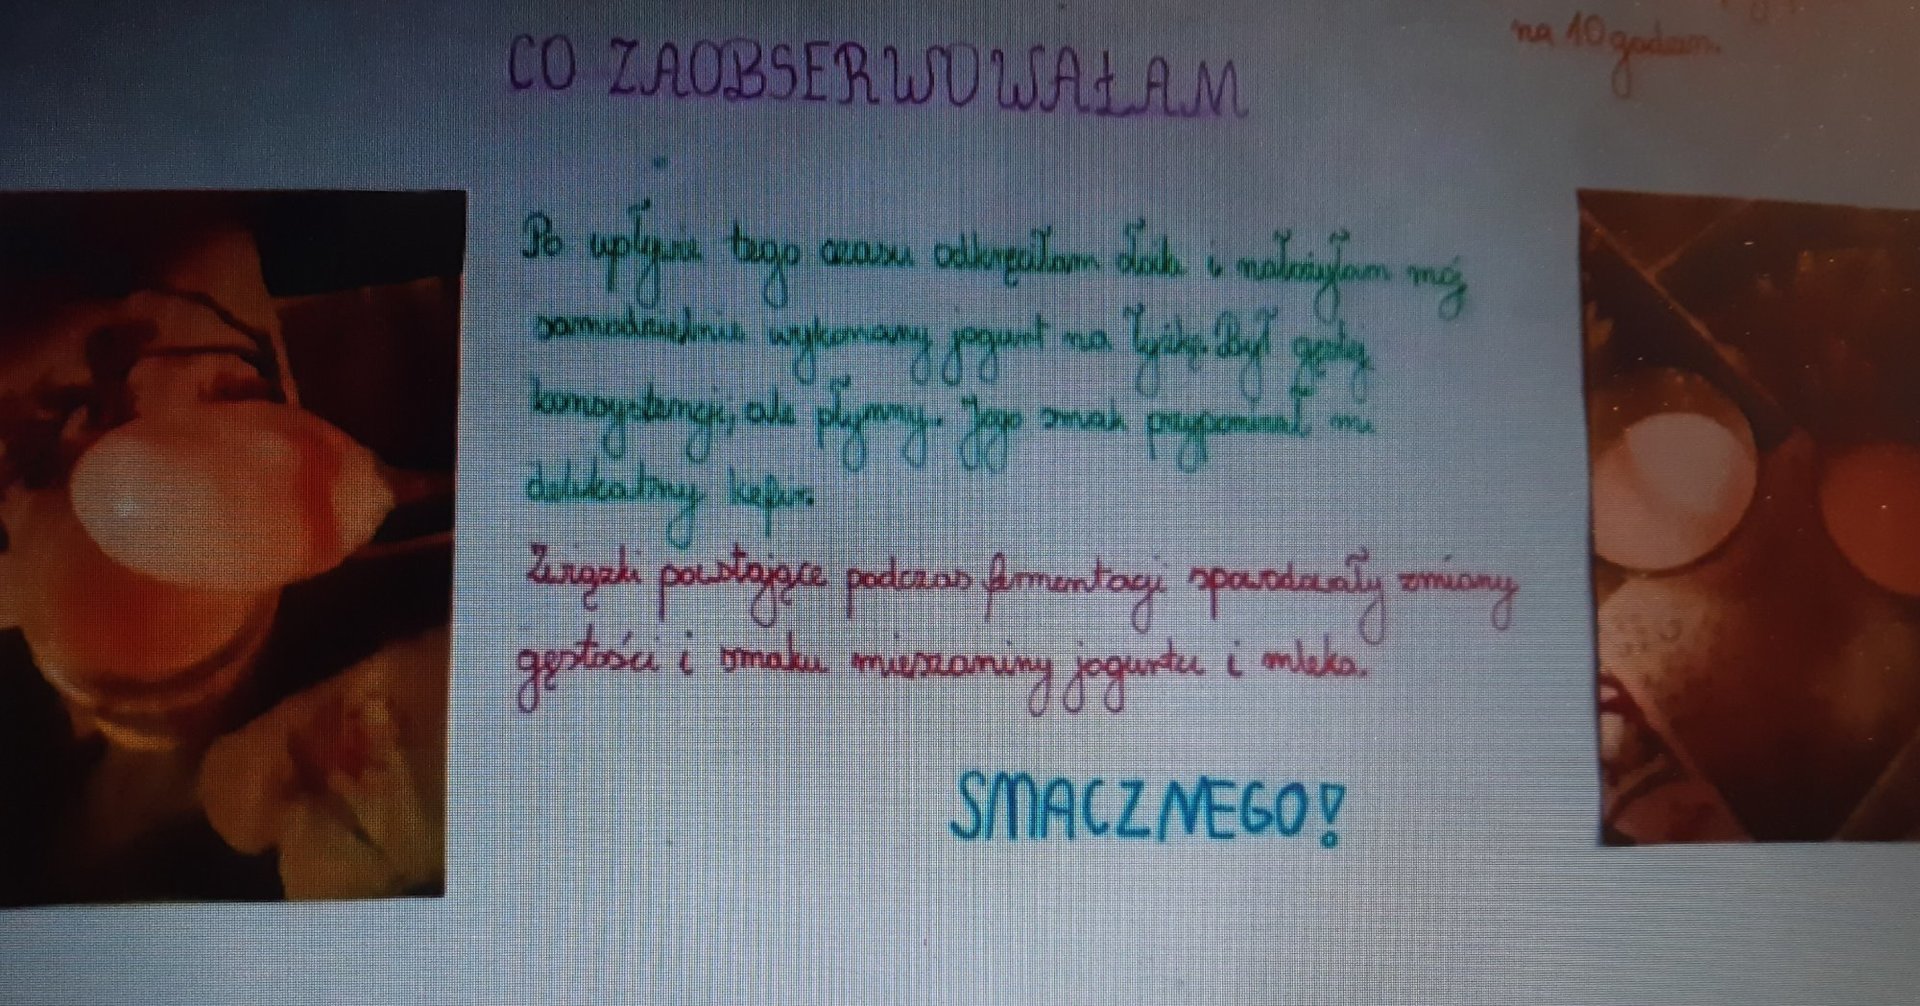 na 10 godzin.
CO ZAOBSERWOWAŁAM
Po upływie tego czasu odkręciłam słoik i nałożyłam mój
samodzielnie wykonany jogurt na łyżkę. Był gęstej
konsystencji, ale płynny. Jego smak przypominał mi
delikatny kefir.
Związki powstające podczas fermentacji spowodowały zmiany
gęstości i smaku mieszaniny jogurtu i mleka.
SMACZNEGO!